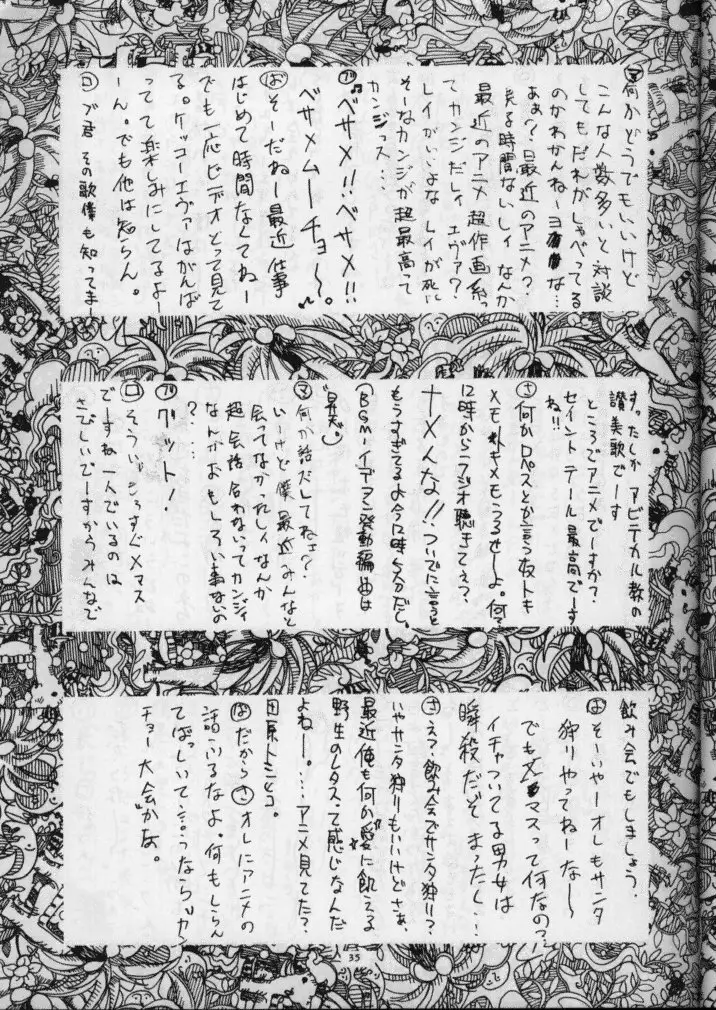 マ何かどうでもいいけど
こんな人数多いと対談
してもだれがしゃべってる
のかわかんねーヨな…
あぁ？最近のアニメ？
見る時間ないしィなんか
最近のアニメ超作画系っ
てカンジだしィエヴァ？
レイがいいよなレイが死に
そーなカンジが超最高って
カンジっス…
ブ♫ベサメ!!ベサメ!!
ベサメムーチョ〜。
ばそーだねー最近仕事
はじめて時間なくてねー
でも一応ビデオとって見て
る。ケッコーエヴァはがんば
ってて楽しみにしてるよー
ーん。でも他は知らん。
ロブ君その歌僕も知ってまー
すったしかアビテカル教の
讃美歌でーす
ところでアニメでーすか？
セイントテール最高でーす
ね!!
さ何かロペスとか言う夜トも
メモトキメモもうるせーよ。何？
12時からラジオ聴きてぇ？
ナメんな!!ついでに言うと
もうすぎてるよ今12時
(BGM・イデオン発動編曲は
マ何か話だしてねェ？
いーけど僕最近みんなと
会ってなかったしィなんか
超会話合わないってカンジィ
なんかおもしろい事ないの
？……
ブグット！
ロそういえばもうすぐXマス
ですね一人でいるのは
さびしいでーすからみんなで
飲み会でもしましょう.
ばそーいやーオレもサンタ
狩りやってねーな〜
でもXマスって何なの？
イチャついてる男女は
瞬殺だぞまったく…!
さえ？飲み会でサンタ狩り？
いやサンタ狩りもいいけどさぁ、
最近俺も何か愛に飢える
野生のレタスって感じなんだ
よねー。…アニメ見てた？
田原トシひこ。
ばだからさオレにアニメの
話ふるなよ。何もしらん
てばっしいて言うならリカ
チョー大会かな。
35